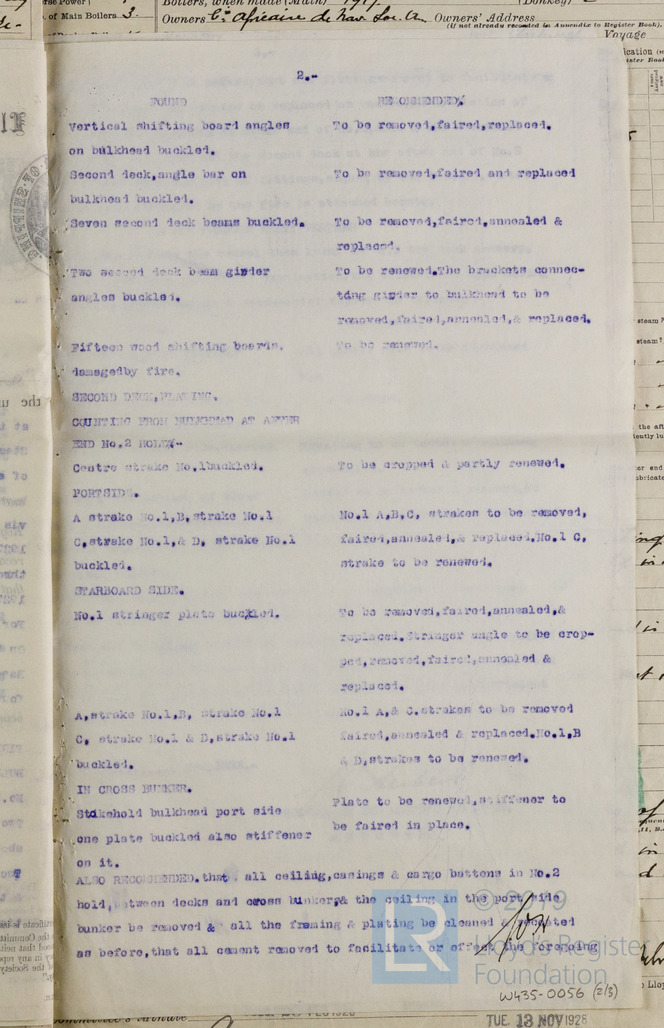 of Main Boilers 3.
Boilers, when made (Main) 1917 (Donkey)
Owners Cie Africaine de Nav. Soc. A. Owners' Address
(If not already recorded in Appendix to Register Book).
Voyage
2.-
FOUND RECOMMENDED.
Vertical shifting board angles To be removed,faired,replaced.
on bulkhead buckled.
Second deck,angle bar on To be removed,faired and replaced
bulkhead buckled.
Seven second deck beams buckled. To be removed,faired,annealed &
replaced.
Two second deck beam girder To be renewed.The brackets connec-
angles buckled. ting girder to bulkhead to be
removed,faired,annealed,& replaced.
Fifteen wood shifting boards. To be renewed.
damagedby fire.
SECOND DECK,PLATING.
COUNTING FROM BULKHEAD AT AFTER
END No.2 HOLD.-
Centre strake No.1buckled. To be cropped & partly renewed.
PORTSIDE.
A strake No.1,B, strake No.1 No.1 A,B,C, strakes to be removed,
C,strake No.1,& D, strake No.1 faired,annealed,& replaced.No.1 C,
buckled. strake to be renewed.
STARBOARD SIDE.
No.1 stringer plate buckled. To be removed,faired,annealed,&
replaced.Stringer angle to be crop-
ped,removed,faired,annealed &
replaced.
A,strake No.1,B, strake No.1 No.1 A,& C.strakes to be removed
C, strake No.1 & D,strake No.1 faired,annealed & replaced.No.1,B
buckled. & D,strakes to be renewed.
IN CROSS BUNKER.
Stokehold bulkhead port side Plate to be renewed,stiffener to
one plate buckled also stiffener be faired in place.
on it.
ALSO RECOMMENDED.that all ceiling,casings & cargo battens in No.2
hold,between decks and cross bunker,& the ceiling in the port side
bunker be removed & all the framing & plating be cleaned & recoated
as before,that all cement removed to facilitate or effect the foregoing
© 2019
LR Lloyd's Register
Foundation
W435-0056 (2/3)
TUE. 13 NOV 1928